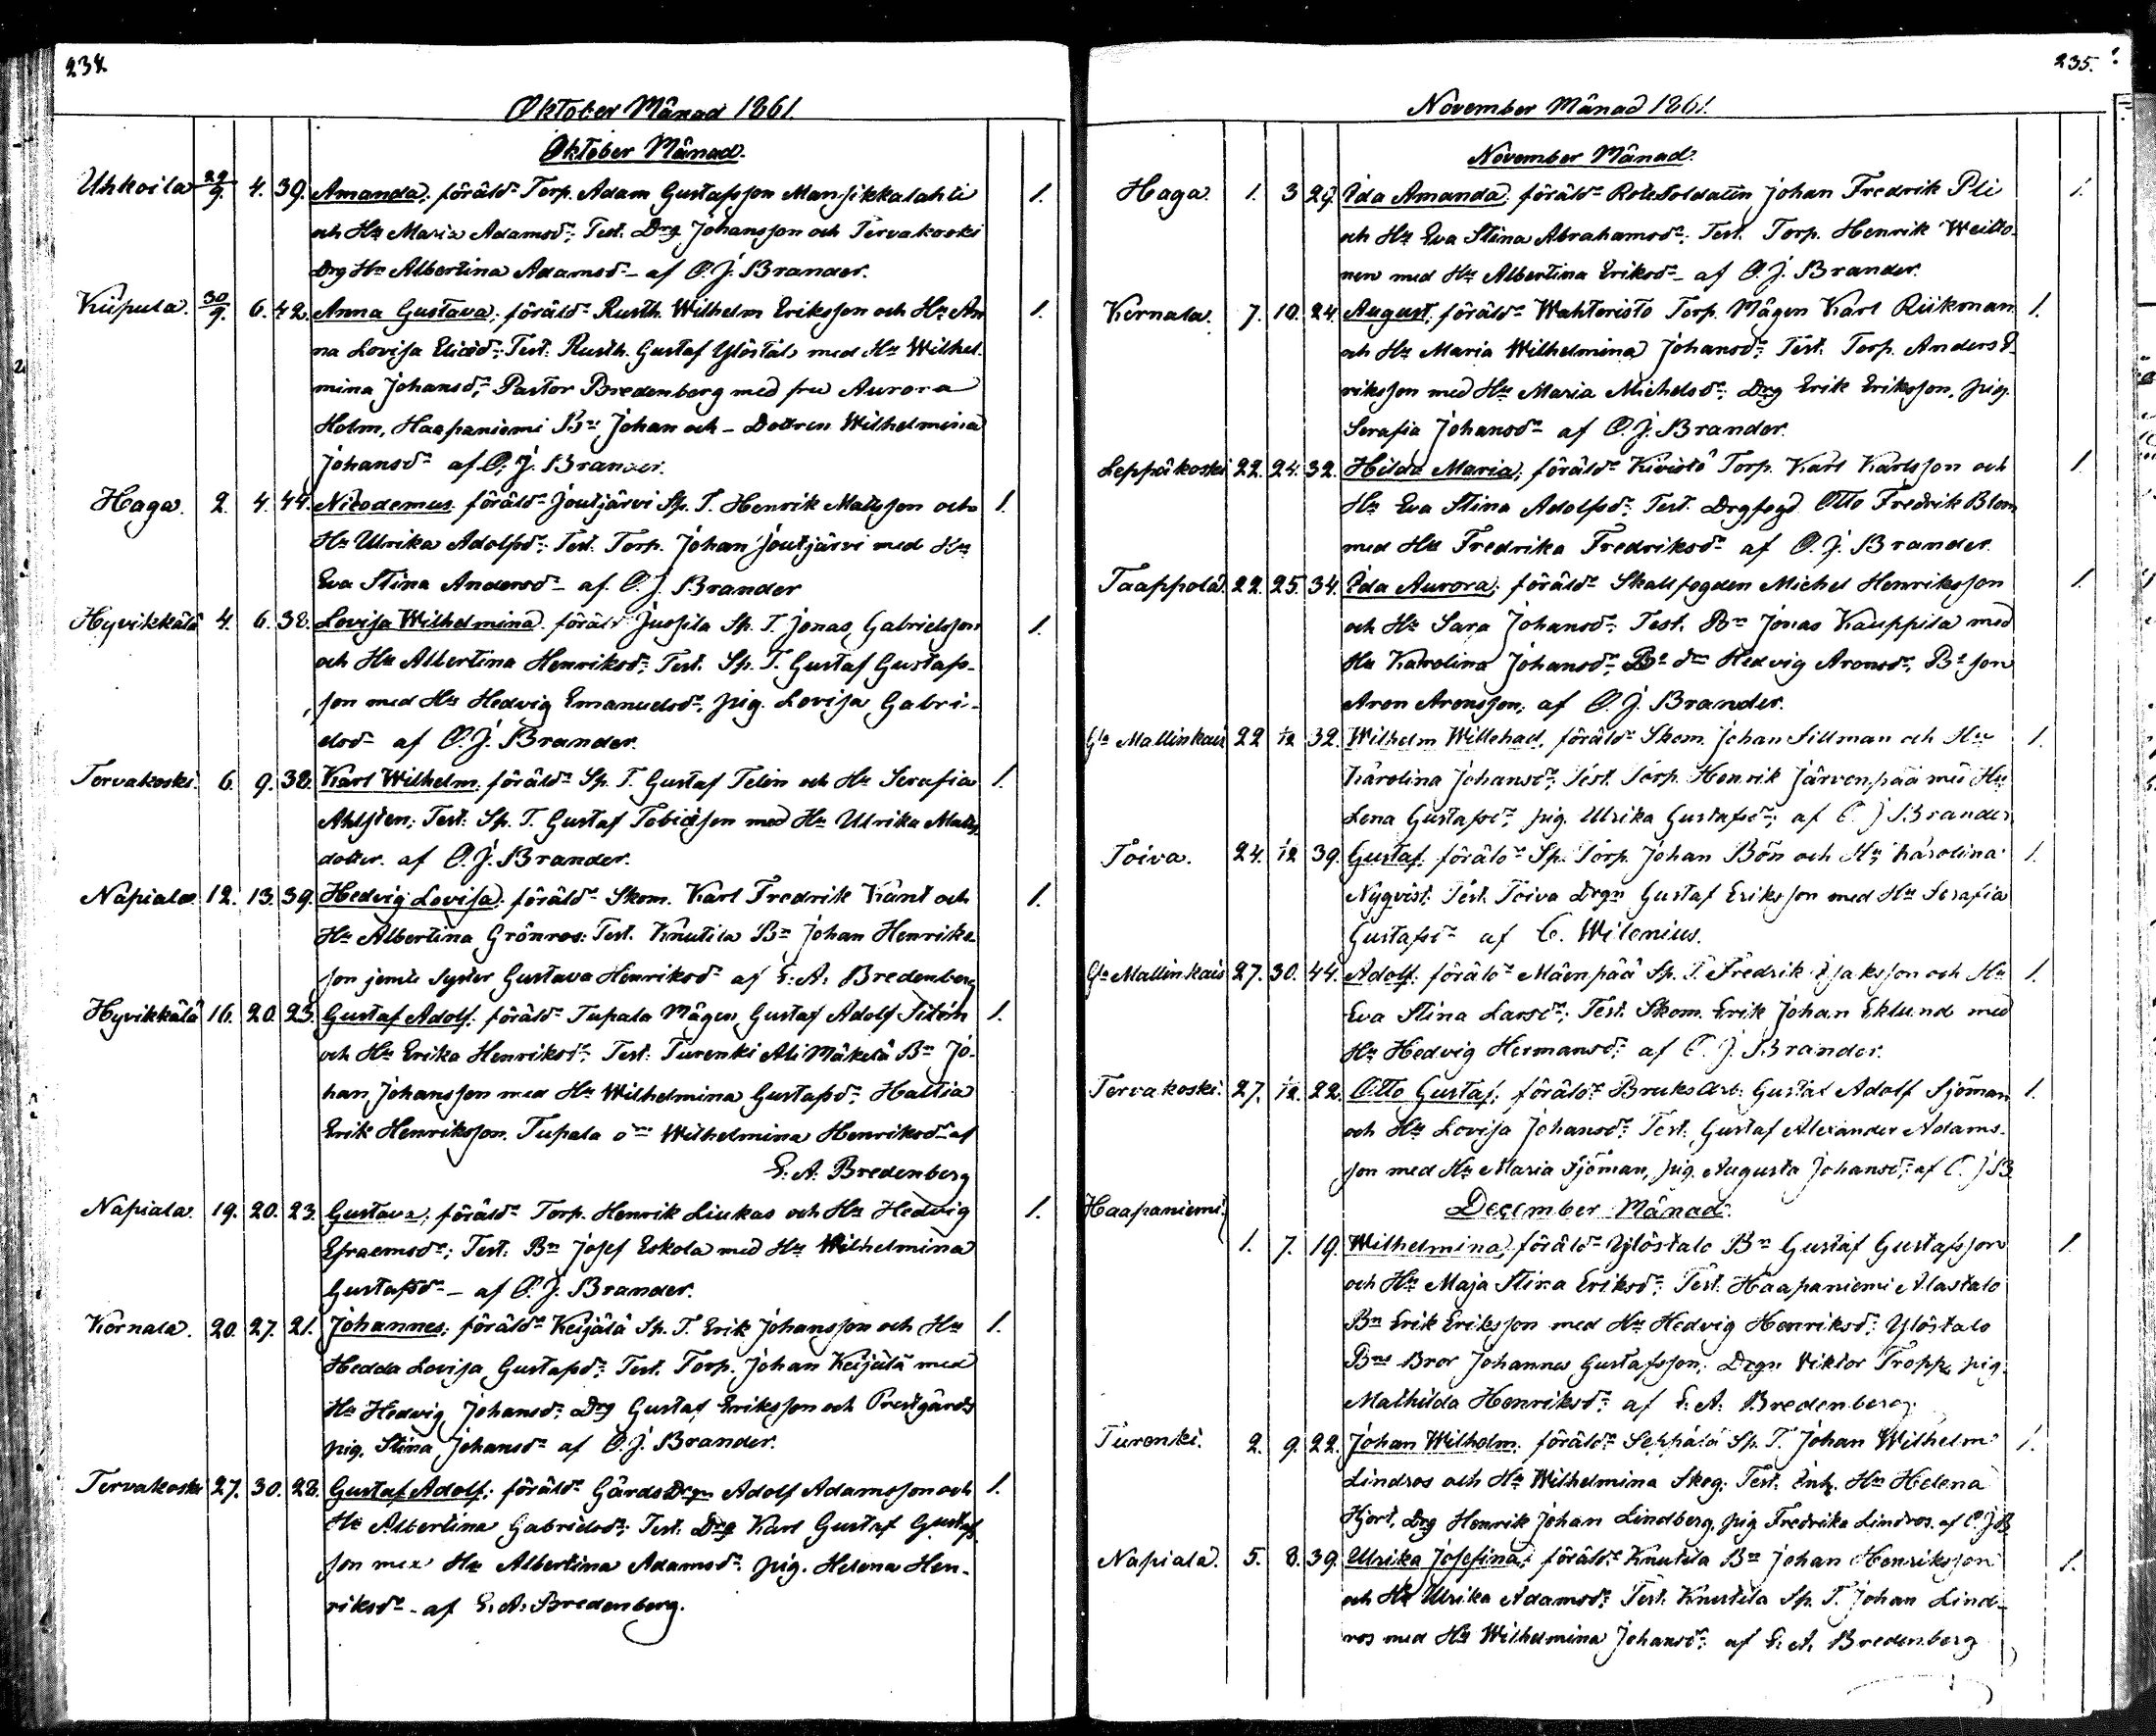 234.
Oktober Månad 1861.
Oktober Månad.
Uhkoila 29/9. 4. 39. Amanda; föräldr Torp. Adam Gustafsson Mansikkalahti 1.
och Hu Maria Adamsdr; Test. Drg Johansson och Tervakoski
Drg Hu Albertina Adamsdr – af O. J. Brander.
Kiipula. 30/9. 6. 42. Anna Gustava; föräldr Rusth. Wilhelm Eriksson och Hu An 1.
na Lovisa Eliædr; Test: Rusth. Gustaf Ylöstalo med Hu Wilhel-
mina Johansdr; Pastor Bredenberg med fru Aurora
Holm, Haapaniemi Bn Johan och – Dottren Wilhelmina
Johansdr af O. J. Brander.
Haga. 2. 4. 44. Nicodemus. föräldr Joutjärvi Sp. T. Henrik Matsson och 1.
Hu Ulrika Adolfsdr; Test. Torp. Johan Joutjärvi med Hu
Eva Stina Andersdr – af O. J. Brander
Hyvikkälä 4. 6. 38. Lovisa Wilhelmina. föräldr Jussila Sp. T. Jonas Gabrielsson 1.
och Hu Albertina Henriksdr; Test. Sp. T. Gustaf Gustafs-
son med Hu Hedvig Emanuelsdr, pig. Lovisa Gabri-
elsdr af O. J. Brander.
Tervakoski. 6. 9. 38. Karl Wilhelm. föräldr Sp. T. Gustaf Telin och Hu Serafia 1.
Ahlsten; Test: Sp. T. Gustaf Tobiæson med Hu Ulrika Mats
dotter. af O. J. Brander.
Napiala. 12. 13. 39. Hedvig Lovisa. föräldr Skom. Karl Fredrik Kant och 1.
Hu Albertina Grönroos: Test. Knutila Bn Johan Henriks-
son jemte Syster Gustava Henriksdr af E. A. Bredenberg
Hyvikkälä 16. 20. 23. Gustaf Adolf. föräldr Tupala Mågen Gustaf Adolf 1.
och Hu Erika Henriksdr; Test: Turenki Ali Mäkelä Bn Jo-
han Johansson med Hu Wilhelmina Gustafsdr; Hattia
Erik Henriksson. Tupala Wilhelmina Henriksdr af
E. A. Bredenberg
Napiala. 19. 20. 23. Gustava; föräldr Torp. Henrik Liukas och Hu Hedvig 1.
Efraemsdr; Test: Bn Josef Eskola med Hu Wilhelmina
Gustafsdr – af O. J. Brander.
Kernala. 20. 27. 21. Johannes; föräldr Keijälä Sp. T. Erik Johansson och Hu 1.
Hedda Lovisa Gustafsdr; Test. Torp. Johan Keijälä med
Hu Hedvig Johansdr; Drg Gustaf Eriksson och Prestgårds
pig. Stina Johansdr af O. J. Brander.
Tervakoski 27. 30. 28. Gustaf Adolf; föräldr Gårds Drgn Adolf Adamsson och 1.
Hu Albertina Gabrielsdr; Test. Drg Karl Gustaf Gustafs
son med Hu Albertina Adamsdr. pig. Helena Hen-
riksdr – af E. A. Bredenberg.
235.
November Månad 1861.
November Månad.
Haga. 1. 3 29. Ida Amanda. föräldr RoteSoldaten Johan Fredrik Pli 1.
och Hu Eva Stina Abrahamsdr; Test. Torp. Henrik Weitto-
nen med Hu Albertina Eriksdr – af O. J. Brander.
Kernala. 7. 10. 24. August; föräldr Wahteristo Torp. Mågen Karl Riikonan 1.
och Hu Maria Wilhelmina Johansdr; Test. Torp. Anders E-
riksson med Hu Maria Michelsdr; Drg Erik Eriksson, pig.
Serafia Johansdr af O. J. Brander.
Leppäkoski 22. 24. 32. Hilda Maria; föräldr Kivistö Torp. Karl Karlsson och 1.
Hu Eva Stina Adolfsdr. Test. Drgfogd. Otto Fredrik Blom
med Hu Fredrika Fredriksdr af O. J. Brander.
Taappola. 22. 25. 34. Ida Aurora; föräldr Skallfogden Michel Henriksson 1.
och Hu Sara Johansdr; Test. Bn Jonas Kauppila med
Hu Karolina Johansdr, Hedvig Aronsdr, Bs son
Aron Aronsson; af O. J. Brander.
Gla Mallinkais 22 1/12 32. Wilhelm Willehad, föräldr Skom. Johan Sillman och Hu 1.
Karolina Johansdr; Test. Torp. Henrik Järvenpää med Hu
Lena Gustafsdr, pig. Ulrika Gustafsdr; af O. J. Brander
Toiva. 24. 1/12 39. Gustaf. föräldr Sp. Torp. Johan Bön och Hu Karolina 1.
Nyqvist: Test. Toiva Drgn Gustaf Eriksson med Hu Serafia
Gustafsdr af C. Wilenius.
Gla Mallinkais 27. 30. 44. Adolf. föräldr Mäenpää Sp. T. Fredrik Isaksson och Hu 1.
Eva Stina Larsdr; Test. Skom. Erik Johan Eklund med
Hu Hedvig Hermansdr; af O. J. Brander.
Tervakoski. 27. 1/12. 22. Otto Gustaf; föräldr BruksArb. Gustaf Adolf Sjöman 1.
och Hu Lovisa Johansdr; Test. Gustaf Alexander Adams-
son med Hu Maria Sjöman, pig. Augusta Johansdr; af O. J. B.
Haapaniemi. December Månad.
1. 7. 19. Wilhelmina; föräldr Ylöstalo Bn Gustaf Gustafsson 1.
och Hu Maja Stina Eriksdr; Test. Haapaniemi Alastalo
Bn Erik Eriksson med Hu Hedvig Henriksdr; Ylöstalo
Bns Bror Johannes Gustafsson; Drgn Viktor Tropp, pig.
Mathilda Henriksdr; af E. A. Bredenberg.
Turenki. 2. 9. 22. Johan Wilhelm; föräldr Seppälä Sp. T. Johan Wilhelm 1.
Lindros och Hu Wilhelmina Skog; Test. Enk. Hu Helena
Hjort, Drg Henrik Johan Lindberg, pig Fredrika Lindros. af O. J. B.
Napiala. 5. 8. 39. Ulrika Josefina; föräldr Knutila Bn Johan Henriksson 1.
och Hu Ulrika Adamsdr; Test. Knutila Sp. T. Johan Lind-
ros med Hu Wilhelmina Johansdr; af E. A. Bredenberg